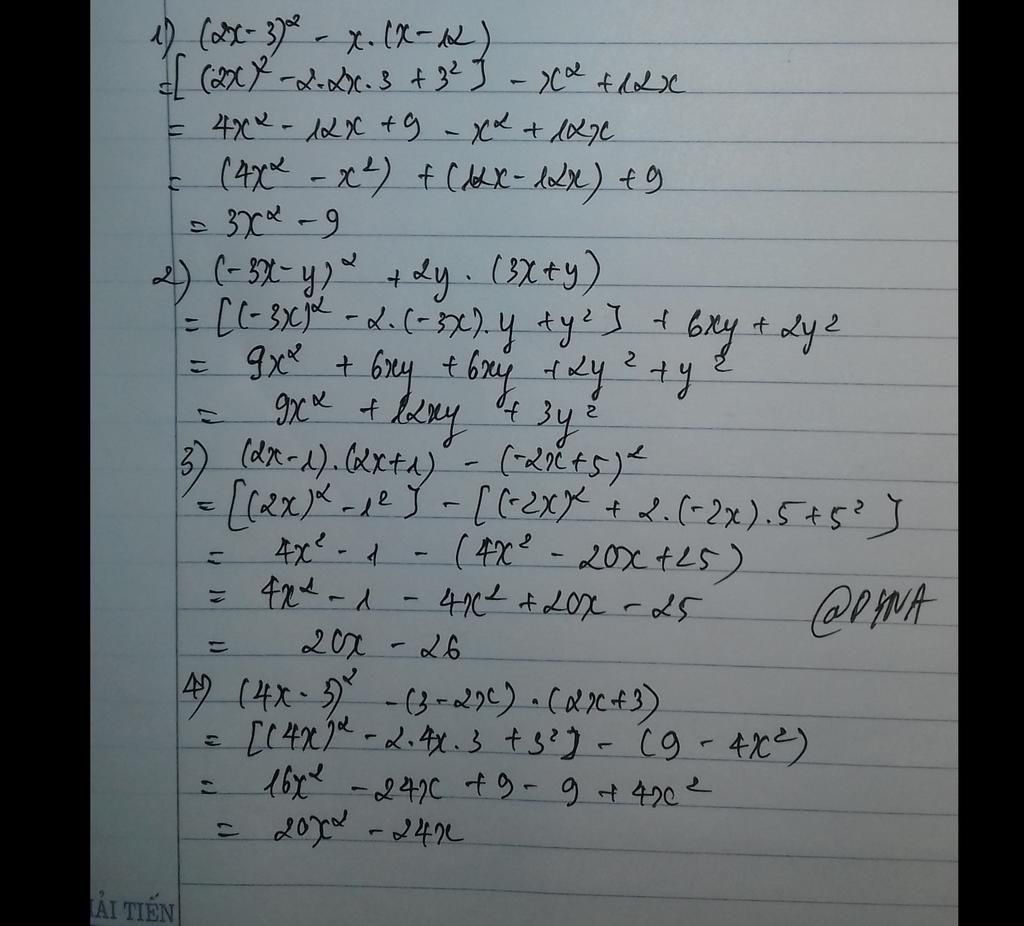 1) (2x-3)² - x.(x-12)
= [(2x)² - 2.2x.3 + 3²] - x² + 12x
= 4x² - 12x + 9 - x² + 12x
= (4x² - x²) + (12x - 12x) + 9
= 3x² - 9
2) (-3x-y)² + 2y . (3x+y)
= [(-3x)² - 2.(-3x).y + y²] + 6xy + 2y²
= 9x² + 6xy + 6xy + 2y² + y²
= 9x² + 12xy + 3y²
3) (2x-1).(2x+1) - (-2x+5)²
= [(2x)² - 1²] - [(-2x)² + 2.(-2x).5 + 5²]
= 4x² - 1 - (4x² - 20x + 25)
= 4x² - 1 - 4x² + 20x - 25
= 20x - 26
4) (4x-3)² - (3-2x).(2x+3)
= [(4x)² - 2.4x.3 + 3²] - (9 - 4x²)
= 16x² - 24x + 9 - 9 + 4x²
= 20x² - 24x
HẢI TIẾN